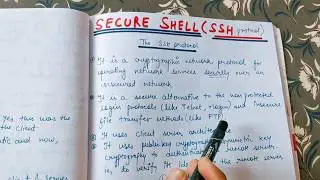 SECURE SHELL (SSH protocol)
The SSH protocol
It is a cryptographic network protocol for
operating network services securely over an
unsecured network.
It is a secure alternative to the non protected
login protocols (like Telnet, rlogin) and insecure
file transfer methods (like FTP)
It uses client server architecture
It uses public key cryptography
cryptography to authenticate the remote server.
to verify it
yes this was the
the client
now,